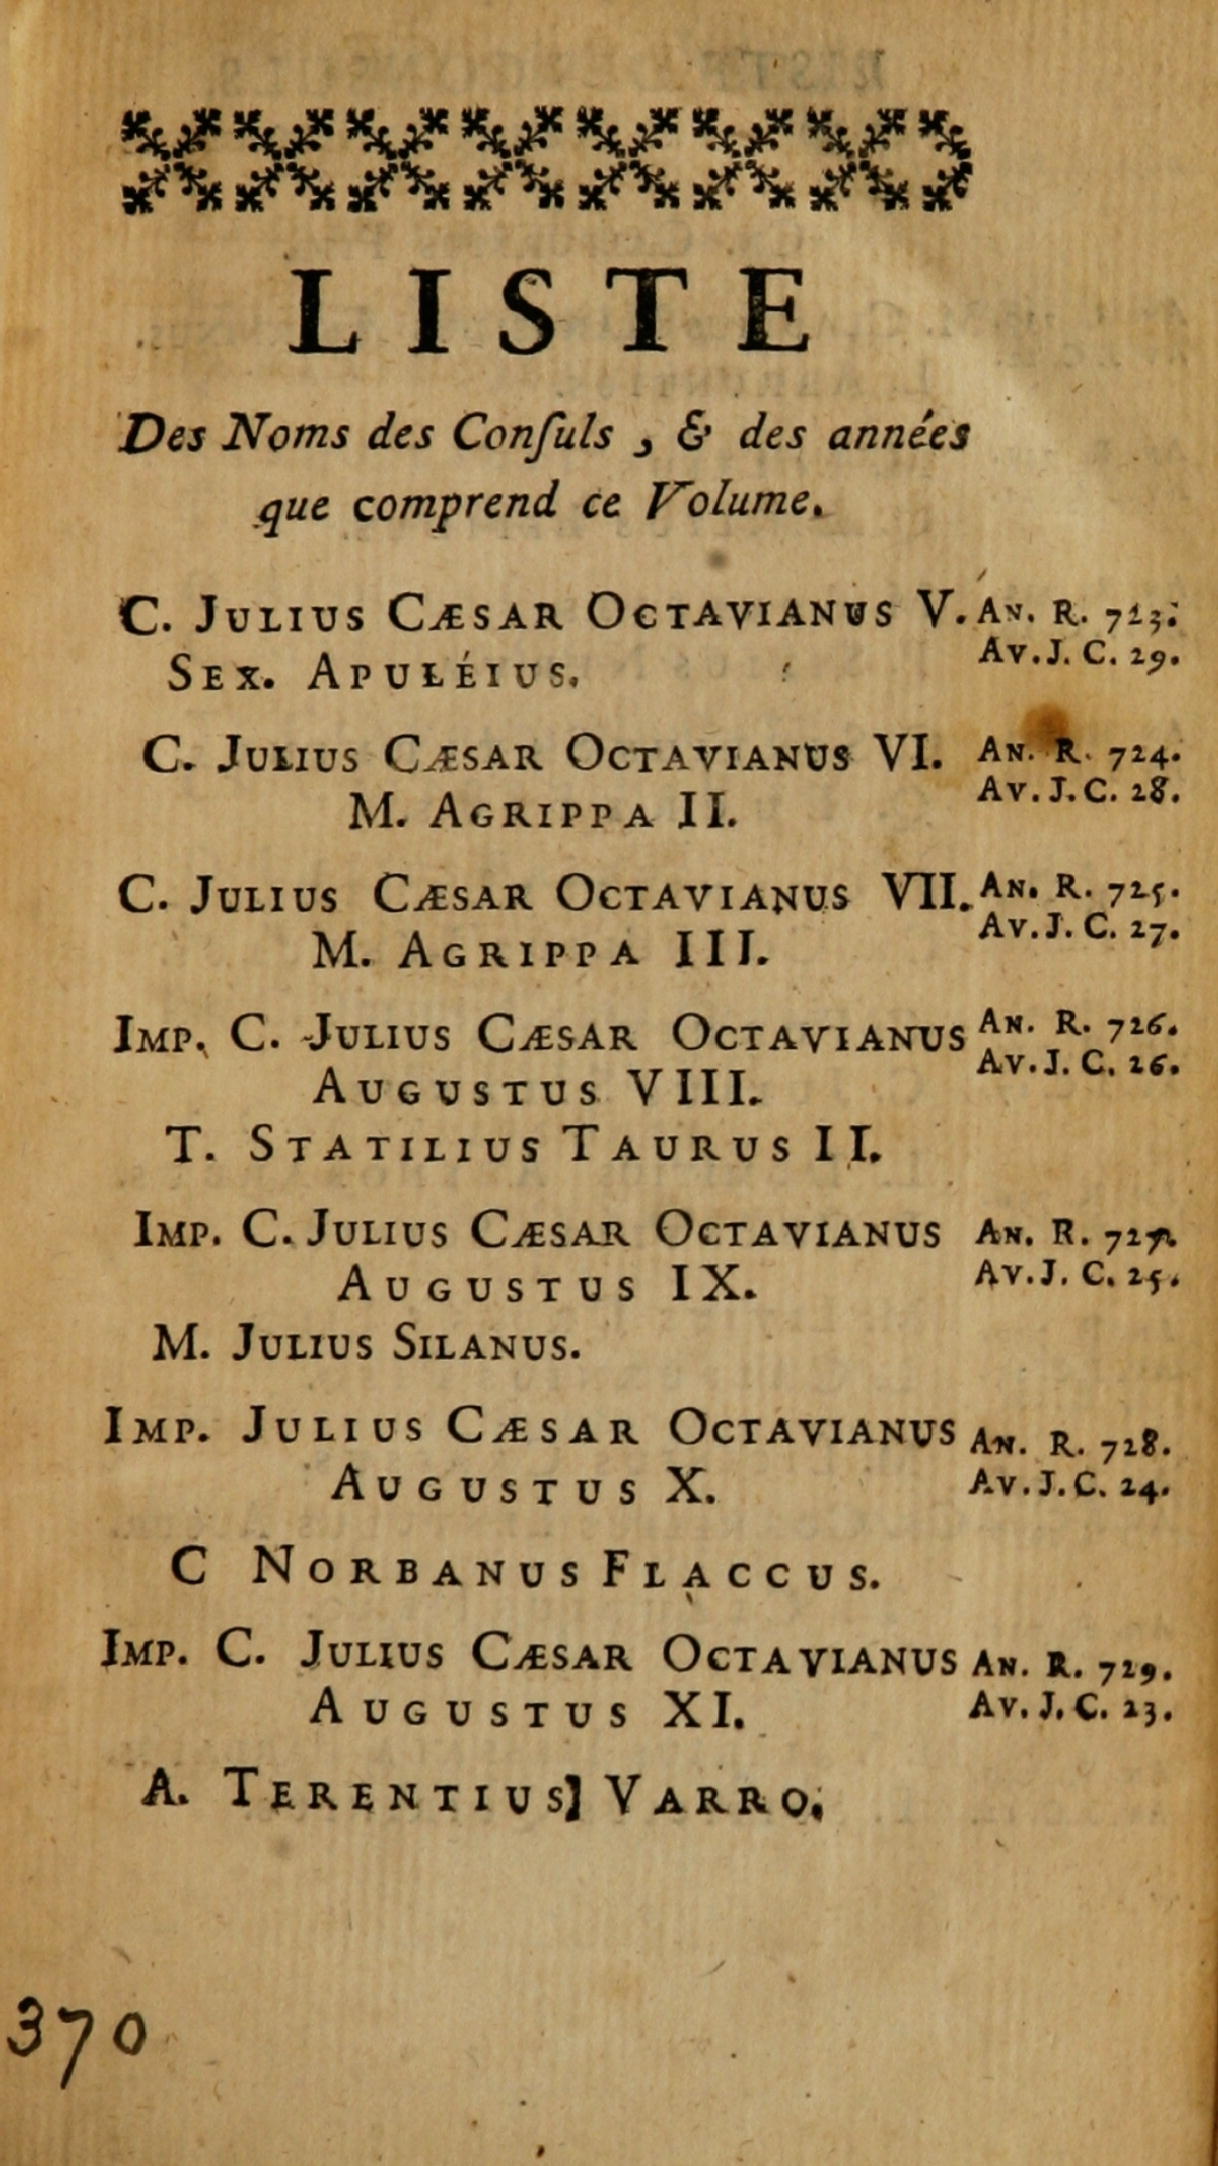 LISTE
Des Noms des Conſuls, & des années
que comprend ce Volume.
C. JULIUS CÆSAR OCTAVIANUS V. AN. R. 723.
SEX. APULÉIUS. AV. J. C. 29.
C. JULIUS CÆSAR OCTAVIANUS VI. AN. R. 724.
M. AGRIPPA II. AV. J. C. 28.
C. JULIUS CÆSAR OCTAVIANUS VII. AN. R. 725.
M. AGRIPPA III. AV. J. C. 27.
IMP. C. JULIUS CÆSAR OCTAVIANUS AN. R. 726.
AUGUSTUS VIII. AV. J. C. 26.
T. STATILIUS TAURUS II.
IMP. C. JULIUS CÆSAR OCTAVIANUS AN. R. 727.
AUGUSTUS IX. AV. J. C. 25.
M. JULIUS SILANUS.
IMP. JULIUS CÆSAR OCTAVIANUS AN. R. 728.
AUGUSTUS X. AV. J. C. 24.
C NORBANUS FLACCUS.
IMP. C. JULIUS CÆSAR OCTAVIANUS AN. R. 729.
AUGUSTUS XI. AV. J. C. 23.
A. TERENTIUS] VARRO.
370